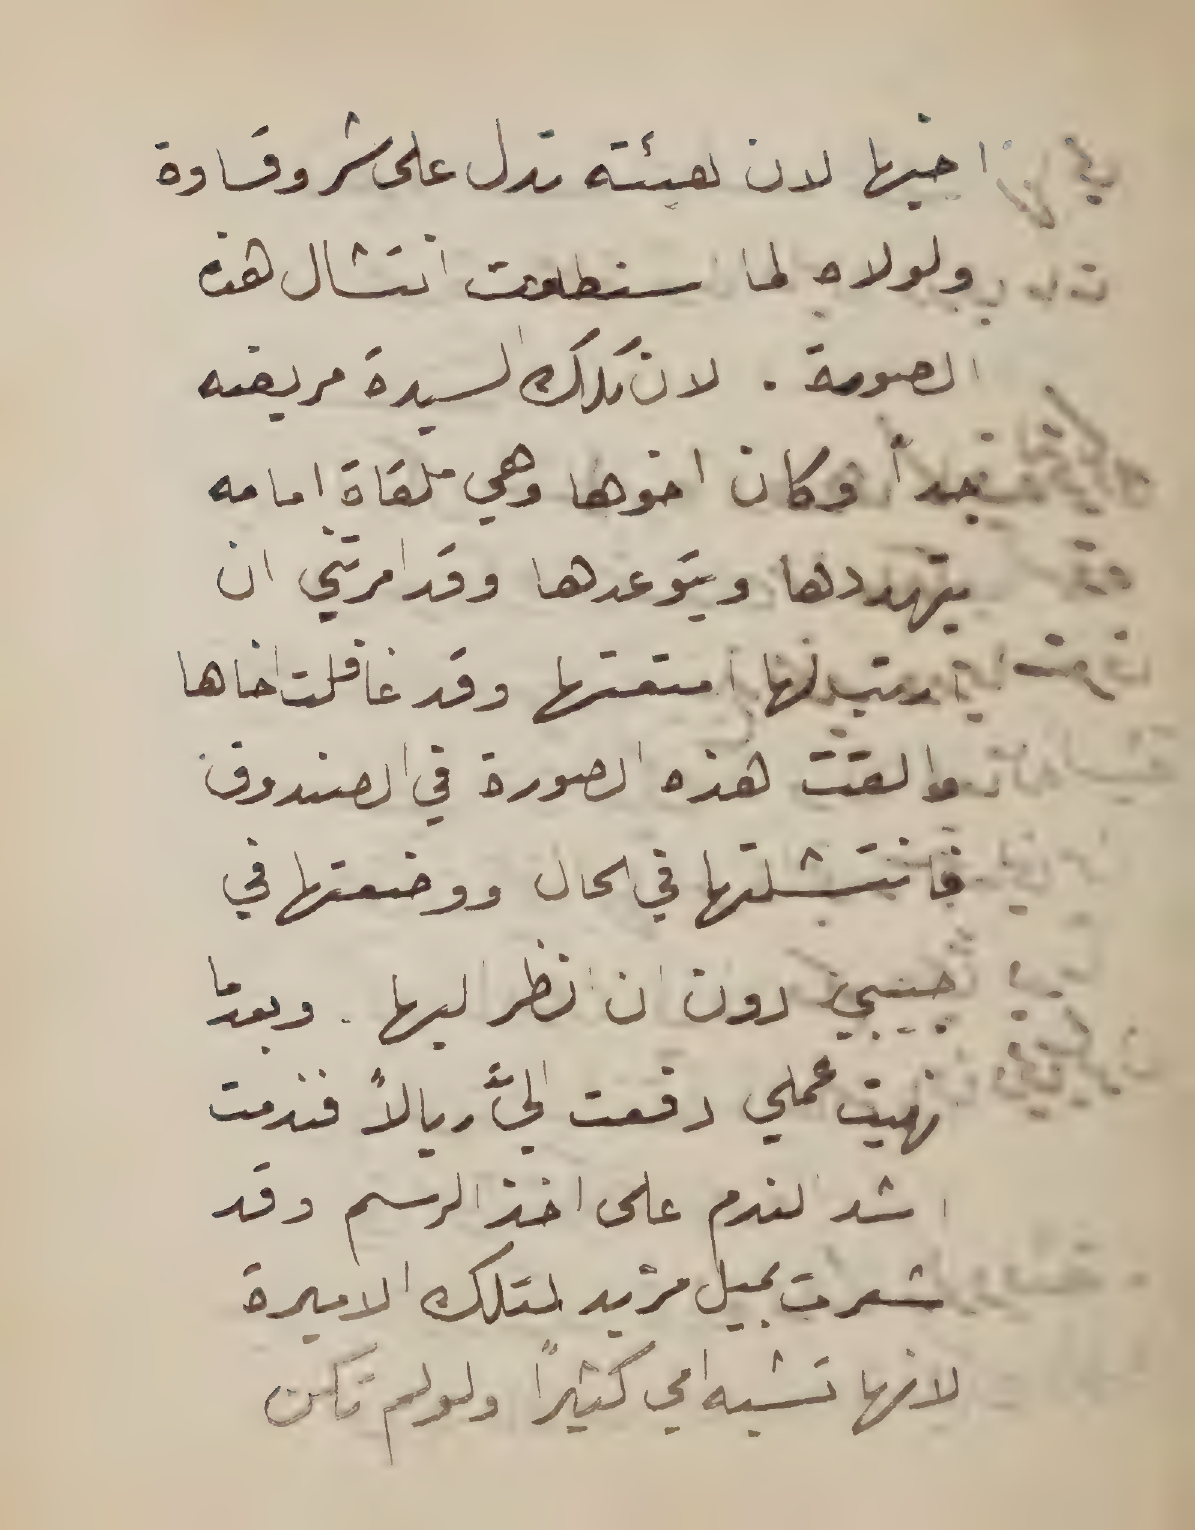 اخيها لان لهيئته تدل على شر وقساوة
ولولاه لما استطعت انتشال هذه
الصورة . لان تلك السيدة مريضه
جداً وكان اخوها وهي ملقاة امامه
يتهددها ويتوعدها وقد امرتني ان
ارتب لها امتعتها وقد غافلت اخاها
والقت هذه الصورة في الصندوق
فانتشلتها في الحال ووضعتها في
جيبي دون ان انظر اليها . وبعدما
نهيت عملي دفعت اليَّ ريالاً فندمت
اشد الندم على اخذ الرسم وقد
شعرت بميل مزيد لتلك الاميرة
لانها تشبه امي كثيراً ولو لم تكن